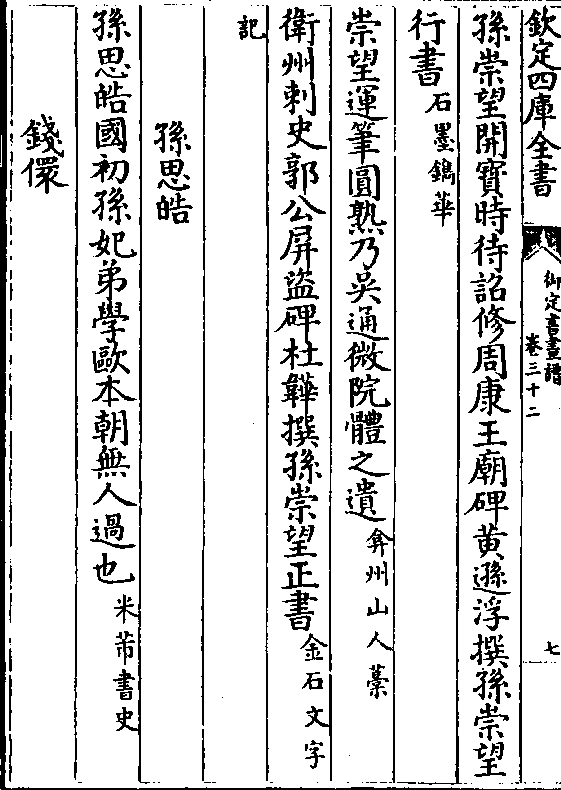 欽定四庫全書
御定書畫譜
卷三十二
七
孫崇望開寶時待詔修周康王廟碑黄遜浮撰孫崇望
行書石墨鐫華
崇望運筆圓熟乃吳通微院體之遺弇州山人藁
衛州刺史郭公屏盜碑杜韡撰孫崇望正書金石文字
記
孫思皓
孫思皓國初孫妃弟學歐本朝無人過也米芾書史
錢儇